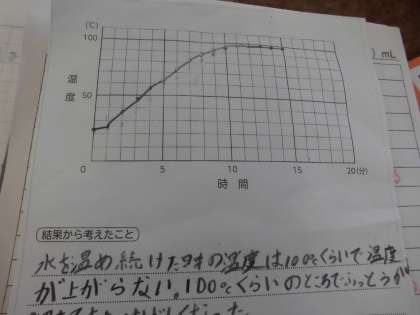 (℃)
100
温度
50
0
5
10
15
20(分)
時間
) mL
結果から考えたこと
水を温め続けた時の温度は100℃くらいで温度
が上がらない。100℃くらいのところでふっとうが